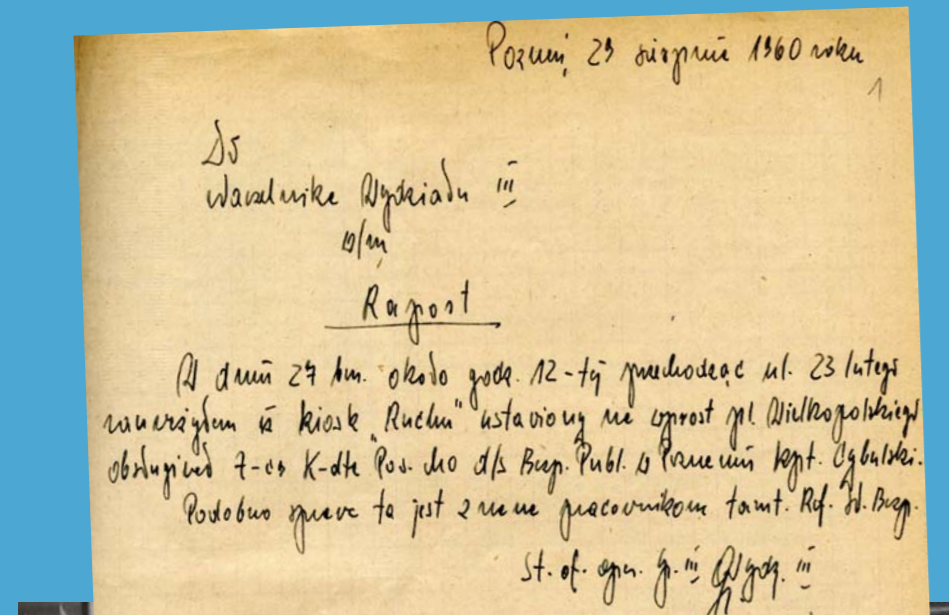 Poznań, 29 sierpnia 1960 roku
1
Do
Naczelnika Wydziału III
w/m
Raport
W dniu 27 bm. około godz. 12-tej przechodząc ul. 23 lutego
zauważyłem iż kiosk „Ruchu" ustawiony na wprost pl. Wielkopolskiego
obsługiwał Z-ca K-dta Pow. MO d/s Bezp. Publ. w Poznaniu kpt. Cybulski.
Podobno sprawa ta jest znana pracownikom tamt. Ref. Sł. Bezp.
St. of. oper. Gr. III Wydz. III